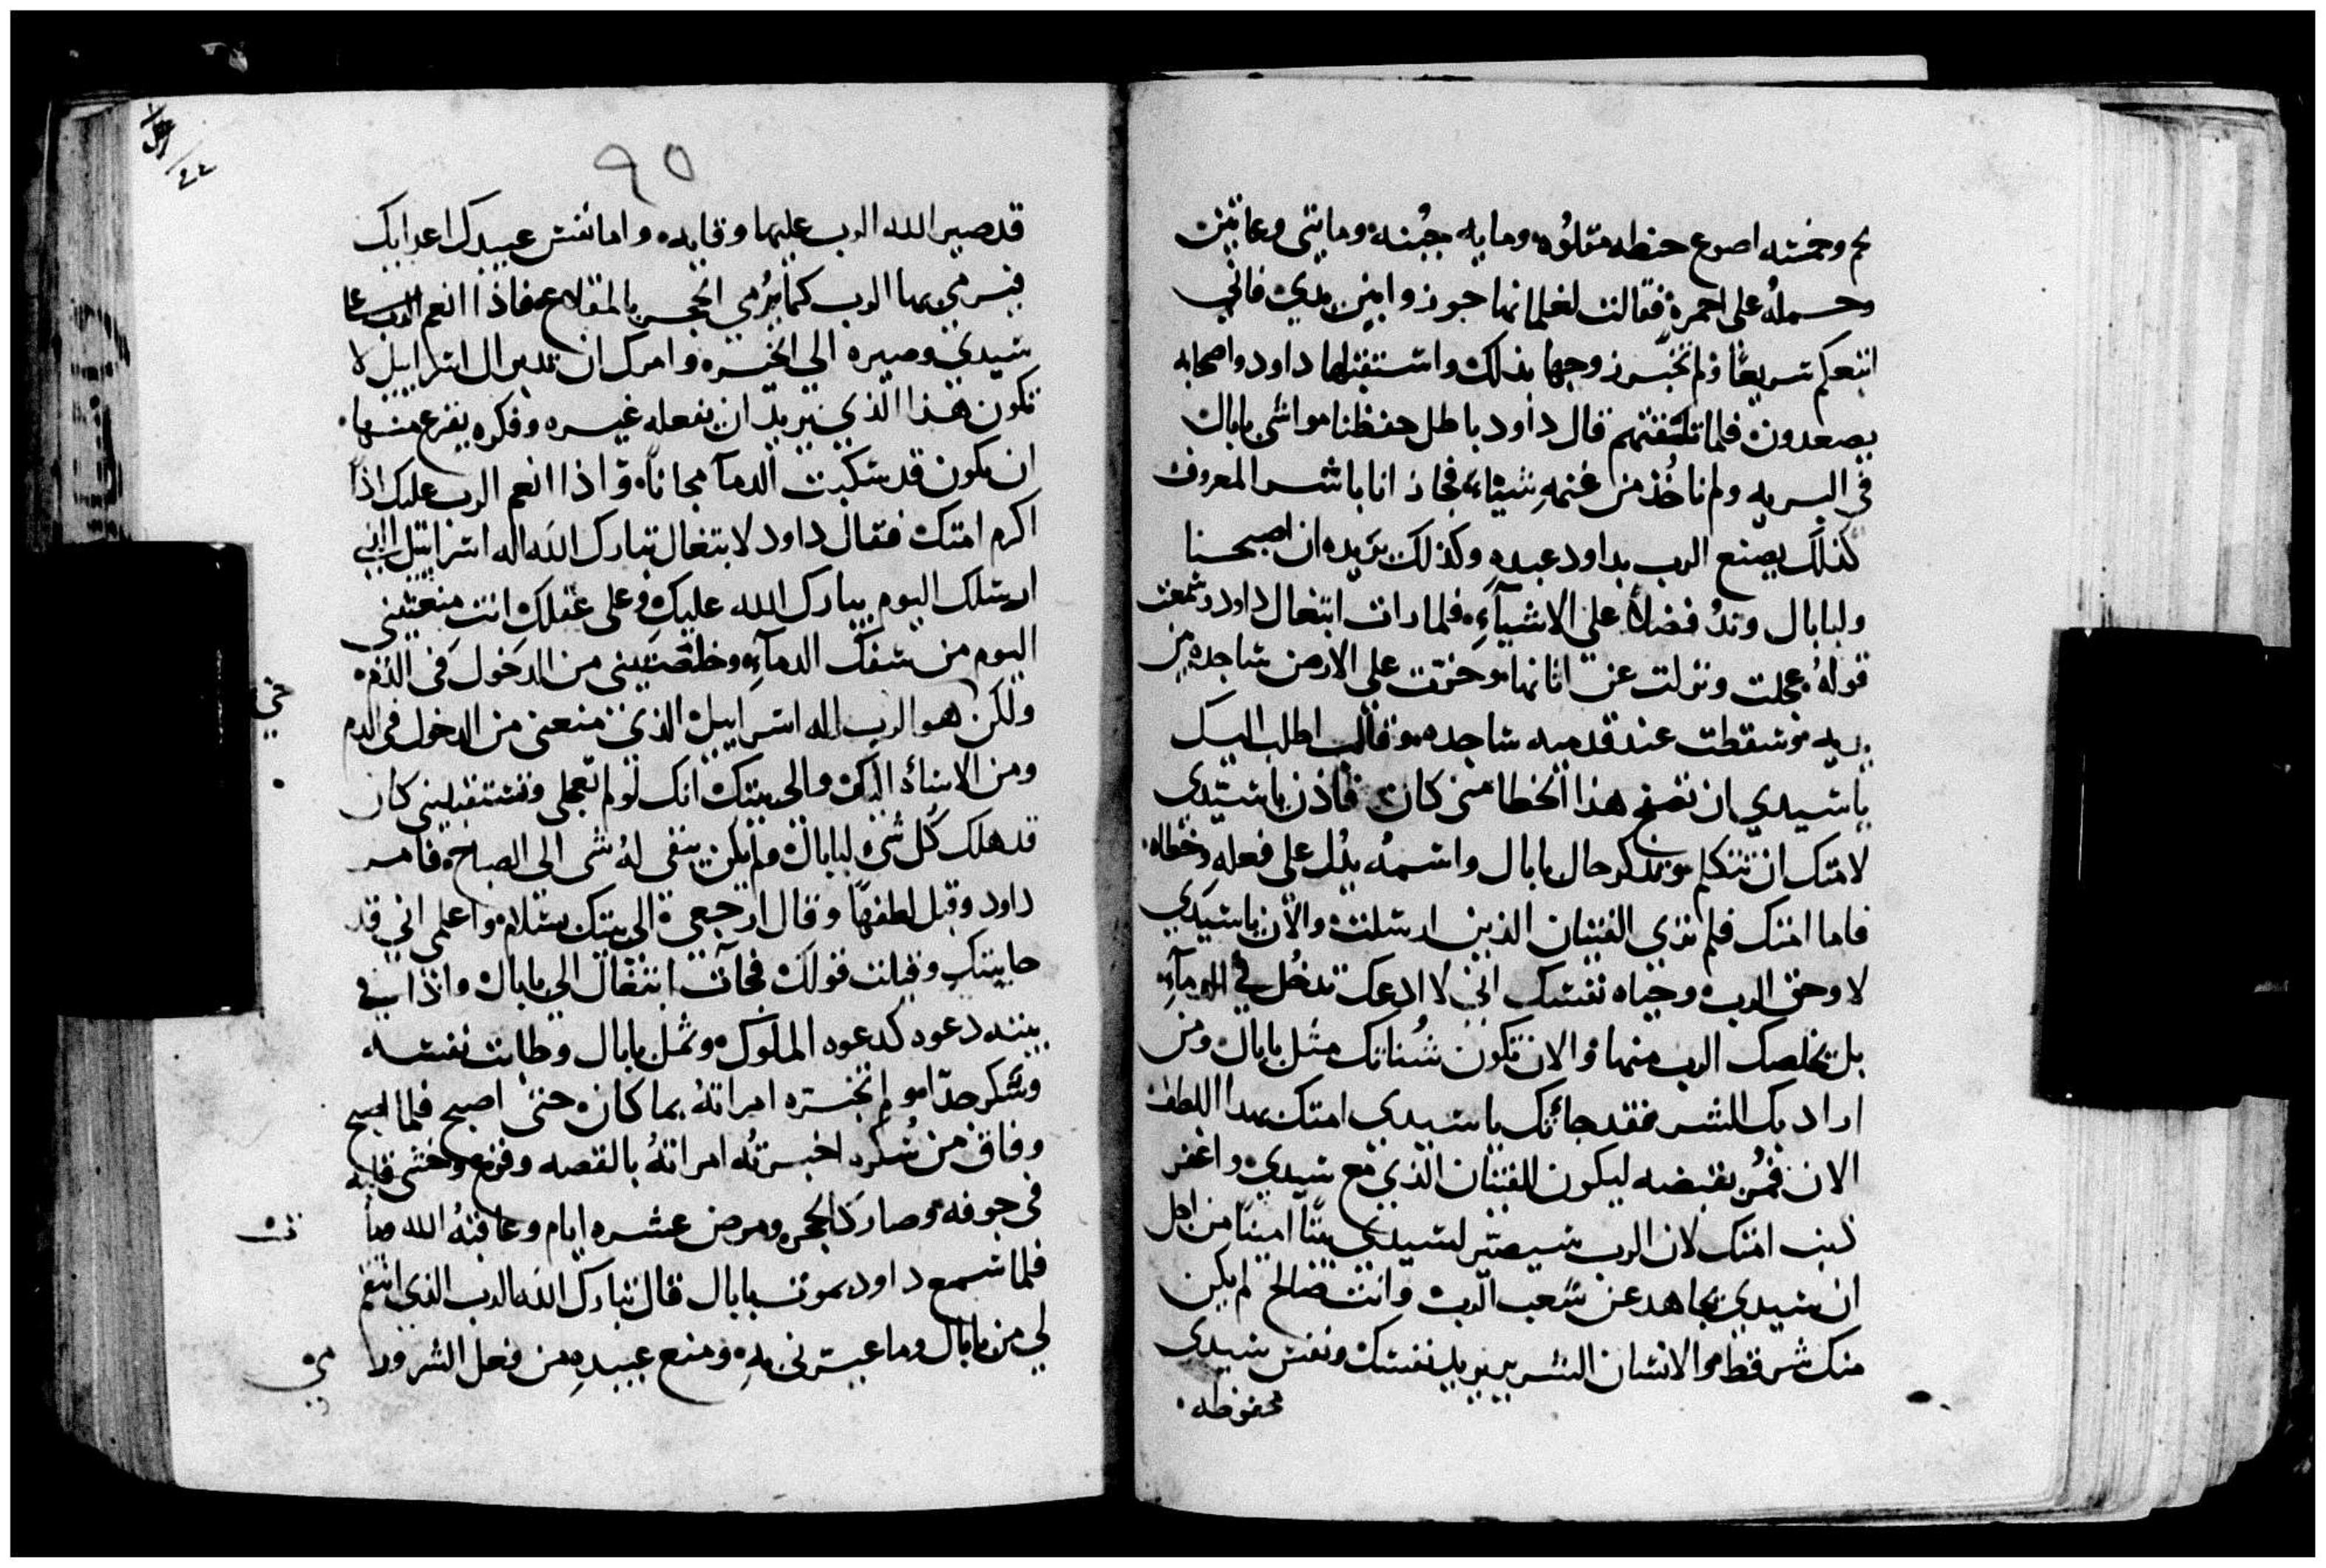 لحم وخمسه اصوع حنطه مقلوه ومايه جبنه ومايتي وعاتين
وحمله على احمرة فقالت لغلمانها جوزوا بين يدي فاني
اتبعكم سريعًا ولم تخبر زوجها بذلك واستقبلها داود واصحابه
يصعدون فلما تلقتهم قال داود باطل حفظنا مواشي باباك
في البريه ولم ناخذ من غنمهِ شيئاء فجازانا باشر المعروف
كذلك يصنع الرب بداود عبدهِ وكذلك يزيده ان اصبحنا
ولبابال وتدُ فضلاً على الاشيآءِ فلما رات ابتغال داود وسمعت
قولهُ عجلت ونزلت عن اتانها وخرّت على الارض ساجده بين
يديه وسقطت عند قدميه ساجده وقالت اطلب اليك
ياسيدي ان تصفح هذا الخطا مني كان فاذن ياسيدي
لامتك ان تتكلم وتذكر حال بابال واسمهُ يدُل على فعلهِ وخطاه
فاما امتك فلم ترى الفتيان الذين ارسلت والان ياسيَدي
لا وحق الرب وحياه نفسك اني لا ادعك تدخُل في الدمآء
بل يخلصك الرب منها والان تكون شُناتك مثل باباك ومن
اراد بك الشر فقد جاتك ياسيدي امتك بهدا اللطف
الان فمُر بقبضه ليكون للفتيان الذي مع سيدي واغفر
ذنب امتك لان الرب سيصيّر لسيدي بيتًا امينًا من اجل
ان سيدي يجاهد عن شعب الرب وانت صالح لم يكن
منك شر قط والانسان الشرير يريد نفسك ونفس سيدي
محفوظه
٩٥
قد صير الله الرب عليها وقايده واما نفس عبيدك اعدايك
فيرمي بها الرب كما يُرمي الحجر بالمقلاع فاذا انعم الرب على
سيدي وصيره الي الخيره وامرك ان تدبر ال اسراييل لا
تكون هذا الذي يريد ان يفعله غيره وفكره يفزع منها
ان يكون قد سكبت الدمآ مجانًا واذا انعم الرب عليك اذًا
اكرم امتك فقال داود لابتغال تبارك الله اله اسراييل الذي
ارسلك اليوم يبارك الله عليكِ وعلى عقلكِ انتِ منعتيني
اليوم من سفك الدمآءِ وخلصتيني من الدخول في الذم
ولكن هو الرب اله اسراييل الذي منعني من الدخول في الدم
ومن الاساة اليك والي بيتك انك لو لم تعجلي وتستقبليني كان
قد هلك كُل شيء لباباك ولم يكن يبقى لهُ شي الي الصباح فامر
داود وقبل لطفها وقال ارجعي الي بيتك بسلام واعلمي اني قد
حابيتك وقبلت قولك فجآت ابتغال الي باباك واذا في
بيته دعوه كدعوه الملوك وثمل بابال وطابت نفسه
وسكر جدًا ولم تخبره امراتهُ بما كان حتى اصبح فلما اصبح
وفاق من سُكره اخبرتُه امراتهُ بالقصه وفزع وخشى قلبه
في جوفه وصار كالحجر ومرض عشره ايام وعاقبهُ الله
فلما سمع داود بموت بابال قال تبارك الله الرب الذي انتقم
لي من بابال وما عيرني به ومنع عبيدهِ من فعل الشر ورد